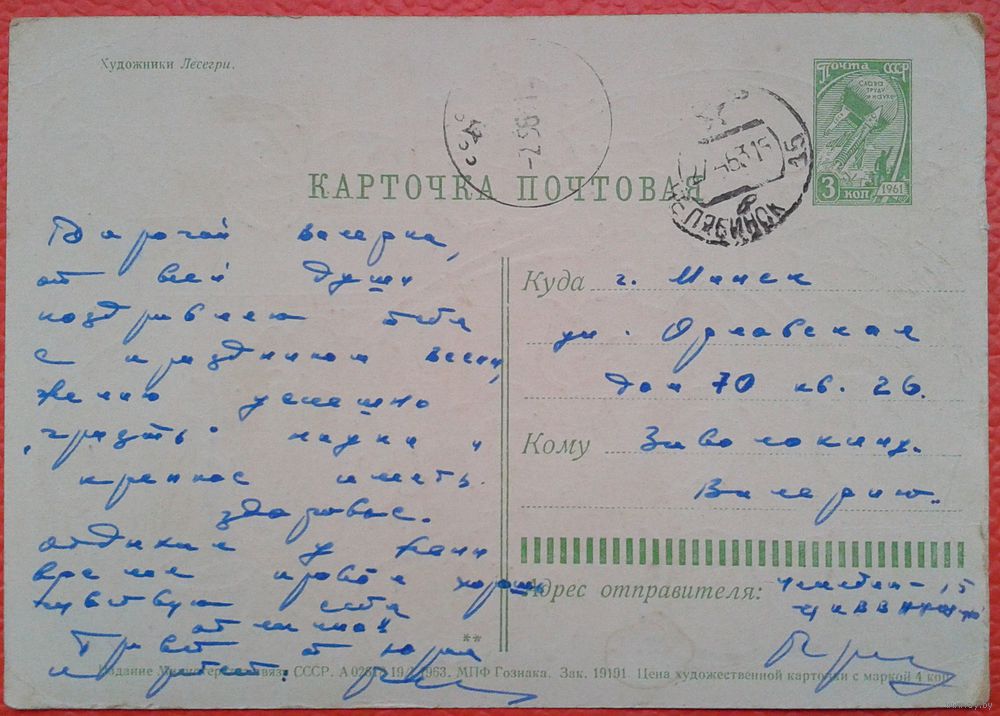 Художники Лесегри.
Почта СССР
СЛАВА
ТРУДУ
И НАУКЕ
3 коп 1961
КАРТОЧКА ПОЧТОВАЯ
ЧЕЛЯБИНСК
15
Дорогой Валерка,
от всей души
поздравляю тебя
с праздником весны,
желаю успешно
"грызть" науки и
крепкое иметь
здоровье.
отдыхаю у
время провожу хорошо
чувствую себя
отлично!
Привет от Юры
и ребят!
Куда г. Минск
ул. Орловская
дом 70 кв. 26.
Кому Заволокиных.
Валерию.
Адрес отправителя: Челябин-15
**
Издание Министерства связи СССР. 1963. МПФ Гознака. Зак. 19191. Цена художественной карточки с маркой 4 коп.